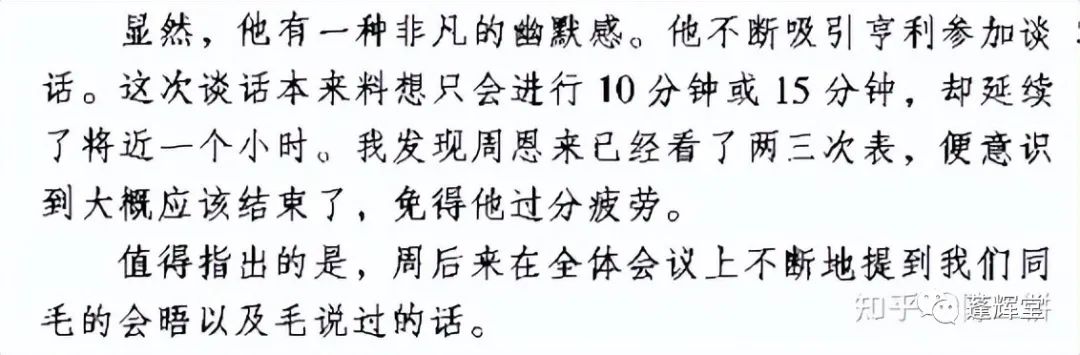 显然，他有一种非凡的幽默感。他不断吸引亨利参加谈
话。这次谈话本来料想只会进行 10 分钟或 15 分钟，却延续
了将近一个小时。我发现周恩来已经看了两三次表，便意识
到大概应该结束了，免得他过分疲劳。
值得指出的是，周后来在全体会议上不断地提到我们同
毛的会晤以及毛说过的话。
知乎
蓬辉堂